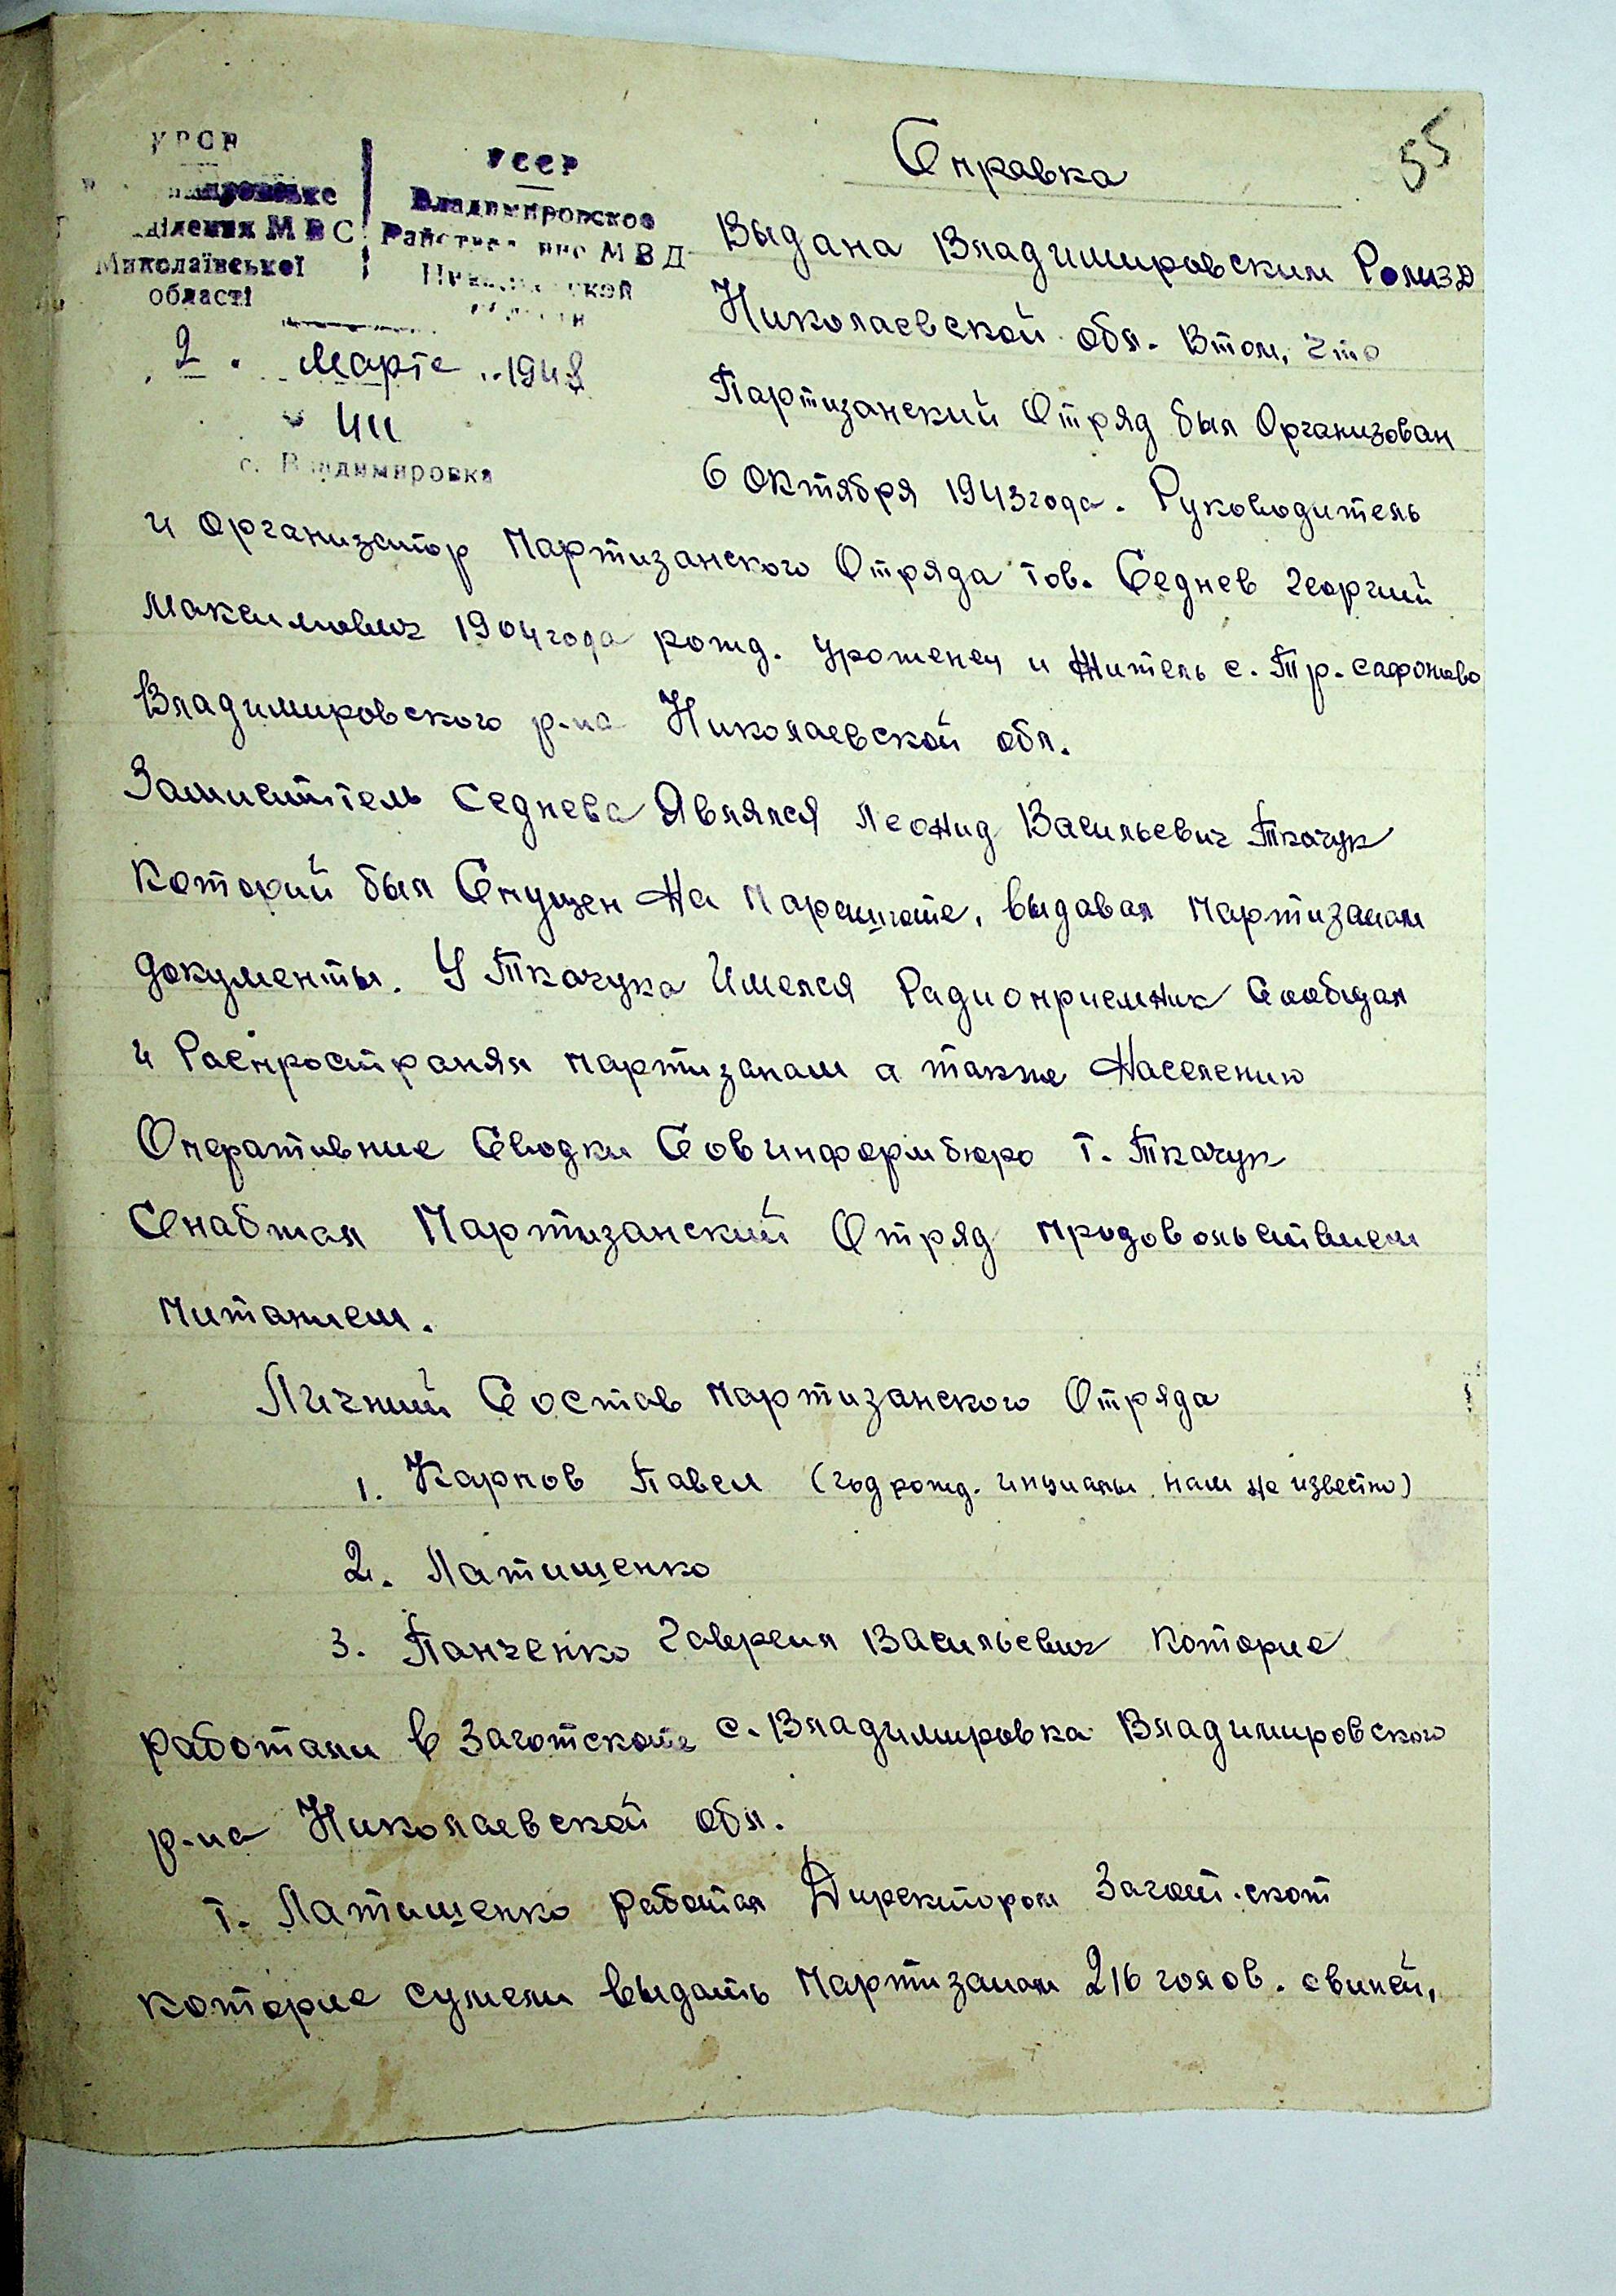 55
УРСР
відділення МВС
Миколаївської
області
УССР
Владимировское
Райотделение МВД
Николаевской
области
2. Марта 1948
411
с. Владимировка
Справка
Выдана Владимировским
Николаевской обл. Втом, что
Партизанский Отряд был Организован
6 Октября 1943года. Руководитель
и организатор Партизанского Отряда тов. Седнев Георгий
Максимович 1904года рожд. уроженец и Житель с. Тр. сафоново
Владимировского р-на Николаевской обл.
Заместитель Седнева Являлся Леонид Васильевич Ткачук
Который был Спущен На Паращюте, выдавал партизанам
документы. У Ткачука Имелся Радиоприемник Сообщал
и Распространял партизанам а также Населению
Оперативние Сводки Совинформбюро т. Ткачук
Снабжал Партизанский Отряд продовольствием
питанием.
Личний Состав партизанского Отряда
1. Карпов Павел (год рожд. инциалы нам не известно)
2. Латищенко
3. Панченко Гавреил Васильевич Которие
работали в Заготскоте с. Владимировка Владимировского
р-на Николаевской обл.
т. Латищенко работал Директором Загот.скот
которие сумели выдать партизанам 216 голов. свиней,